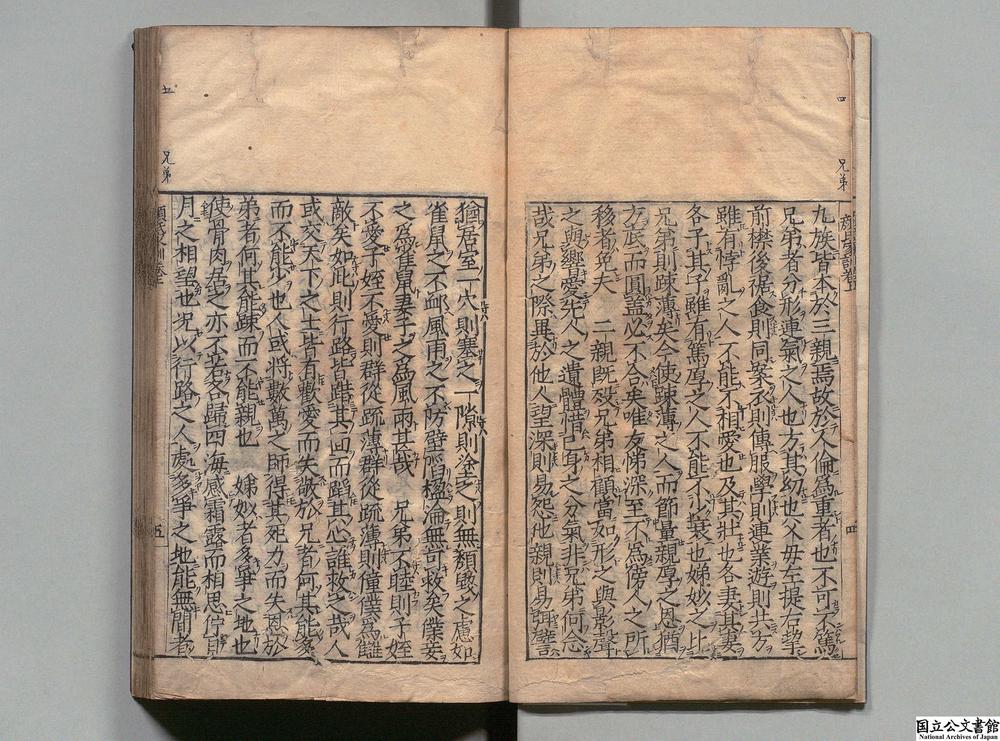 四
兄弟
九族皆本於三親焉故於人倫爲重者也不可不篤
兄弟者分形連氣之人也方其幼也父母左提右挈
前襟後裾食則同案衣則傳服學則連業游則共方
雖有悖亂之人不能不相愛也及其壯也各妻其妻
各子其子雖有篤厚之人不能不少衰也娣姒之比
兄弟則疎薄矣今使疎薄之人而節量親厚之恩猶
方底而圓蓋必不合矣唯友悌深至不爲傍人之所
移者免夫 二親既歿兄弟相顧當如形之與影聲
之與響愛先人之遺體惜己身之分氣非兄弟何念
哉兄弟之際異於他人望深則易怨他親則易弭譬
猶居室一穴則塞之一隙則塗之則無頽毀之慮如
雀鼠之不卹風雨之不防壁陷楹淪無可救矣僕妾
之爲雀鼠妻子之爲風雨甚哉 兄弟不睦則子姪
不愛子姪不愛則群從疏薄群從疏薄則僮僕爲讎
敵矣如此則行路皆踖其面而蹈其心誰救之哉人
或交天下之士皆有歡愛而失敬於兄者何其能多
而不能少也人或將數萬之師得其死力而失恩於
弟者何其能疎而不能親也 娣姒者多爭之地也
使骨肉居之亦不若各歸四海感霜露而相思佇日
月之相望也况以行路之人處多爭之地能無間者
五
兄弟
五
国立公文書館
National Archives of Japan